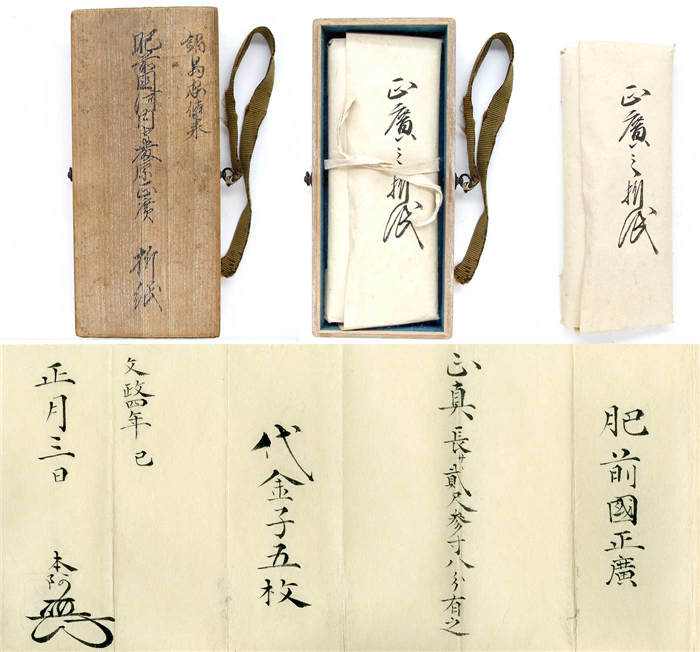 鍋島家傳来
肥前國河内守藤原正廣 折紙
正廣之折紙
正廣之折紙
肥前國正廣
正真 長サ貳尺参寸八分有之
代金子五枚
文政四年 巳
正月三日
本阿